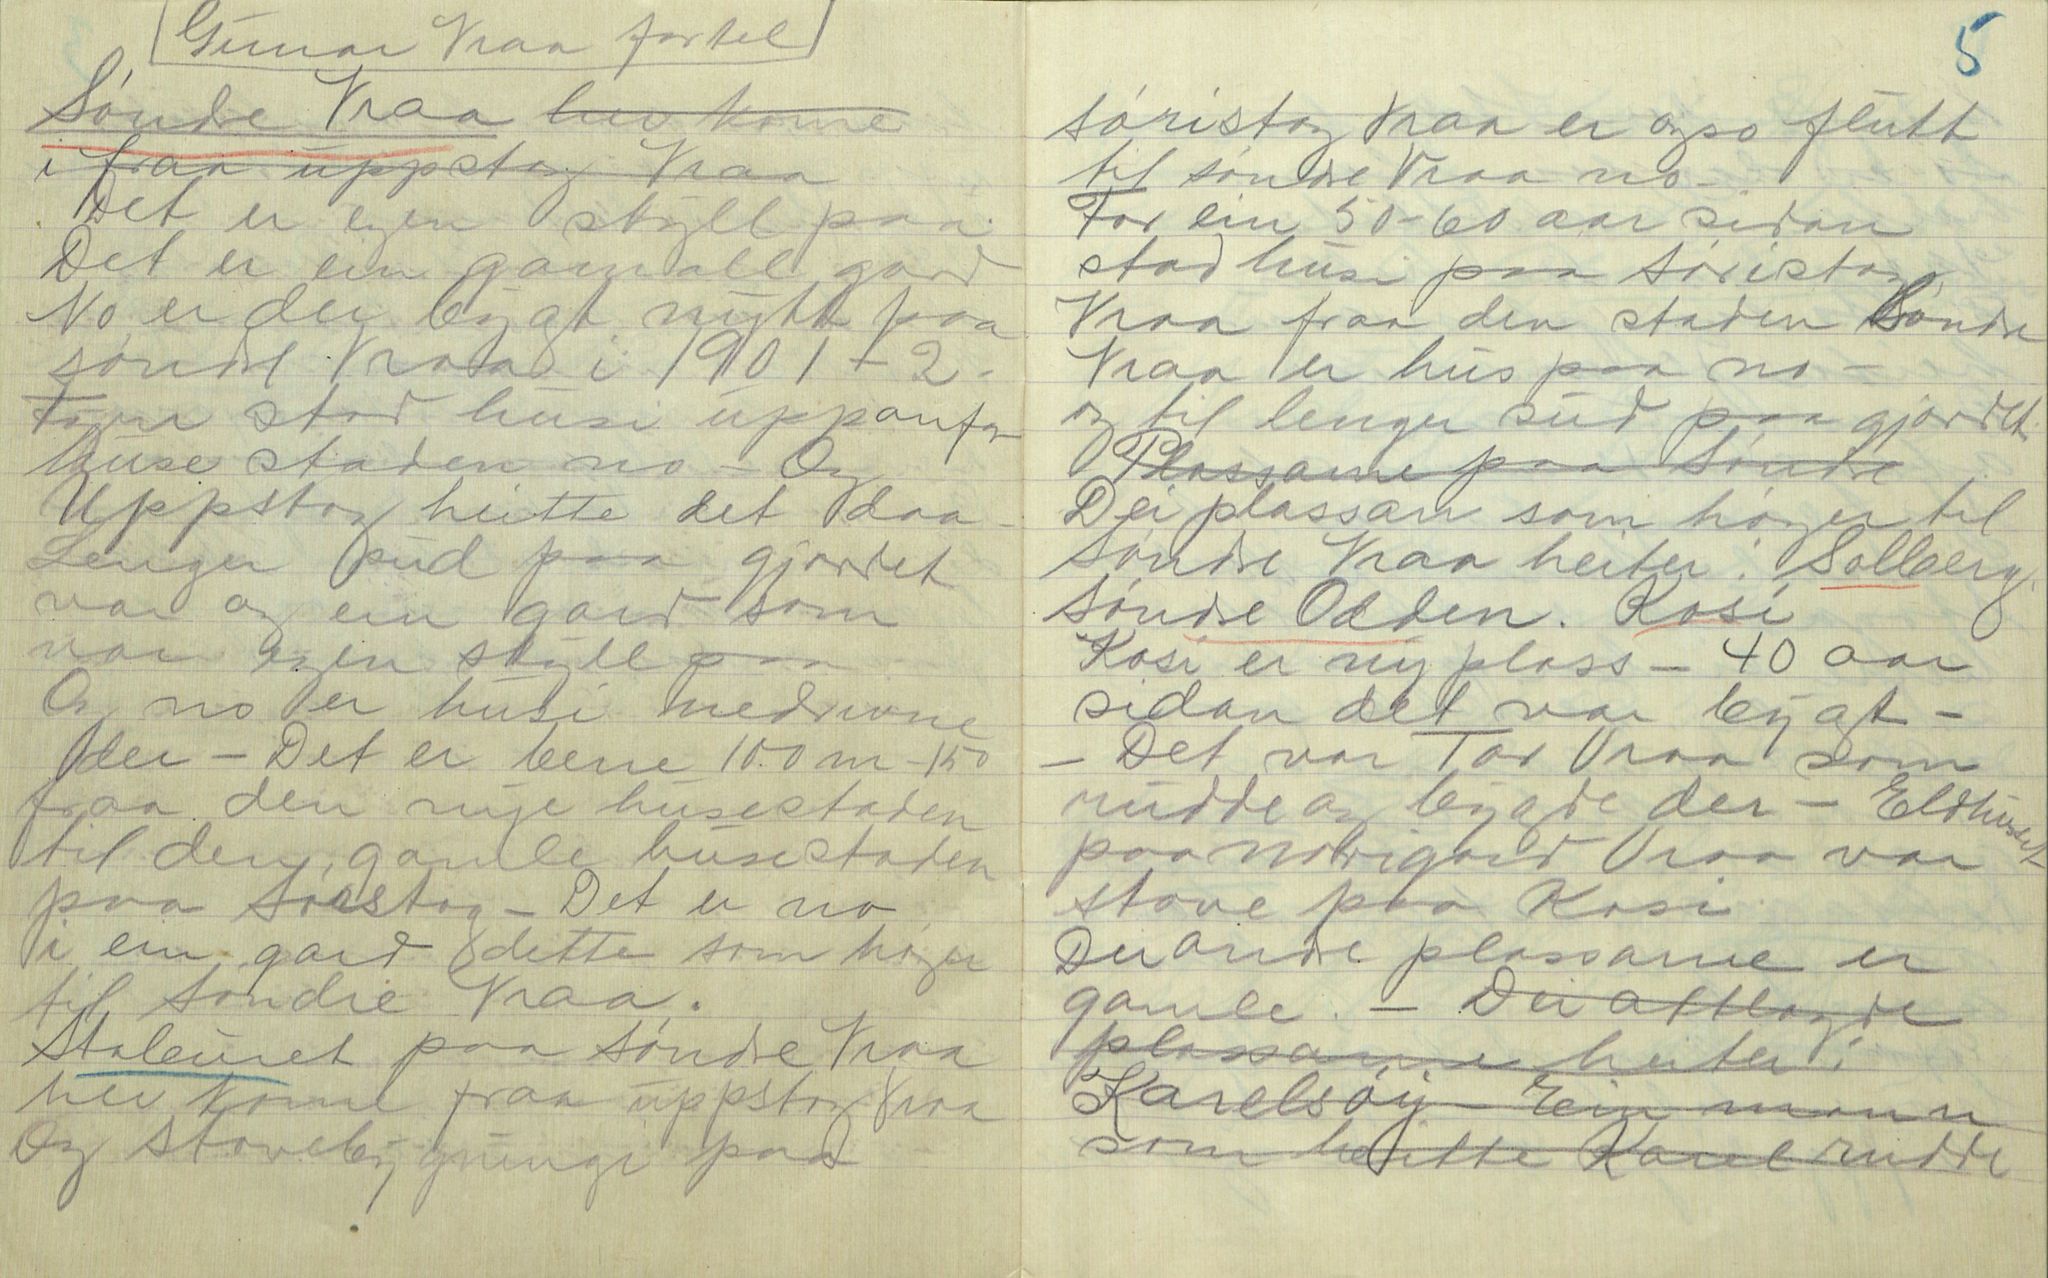 Gunnar Vraa fortel
Søndre Vraa hev kome
i fraa uppstog Vraa
Det er egen skyll paa.
Det er ein gamall gard
No er dey bygt nytt paa
søndre Vraa i 1901-2.
Form stod husi uppanfor
huse staden no - Og
Uppstog heitte det daa -
Lenger sud paa gjordet
var og ein gard som
var egen skyll paa
Og no er husi nedrivne
der - Det er berre 100 m - 150
fraa den nye husestaden
til den gamle husestaden
paa Sørstog - Det er no
i ein gard dette som høyer
til søndre Vraa.
Stoleuret paa søndre Vraa
hev kome fraa uppstog Vraa
Og stovebygningi paa
5
søristog Vraa er ogso flutt
til søndre Vraa no -
For ein 50-60 aar sidan
stod husi paa søristog
Vraa fraa den staden Søndre
Vraa er hus paa no -
og til lenger sud paa gjordet.
Plassane paa Søndre
Dei plassan som høyer til
søndre Vraa heiter: Solberg,
søndre Odden. Kosi
Kosi er ny plass - 40 aar
sidan det var bygt -
- Det var Tor Vraa som
rudde og bygde der - Eldhuset
paa nordigard Vraa var
stove paa Kosi
Dei andre plassane er
gamle. - Dei attlagde
plassane heiter:
Karelsøy - Ein mann
som heitte Karel rudde